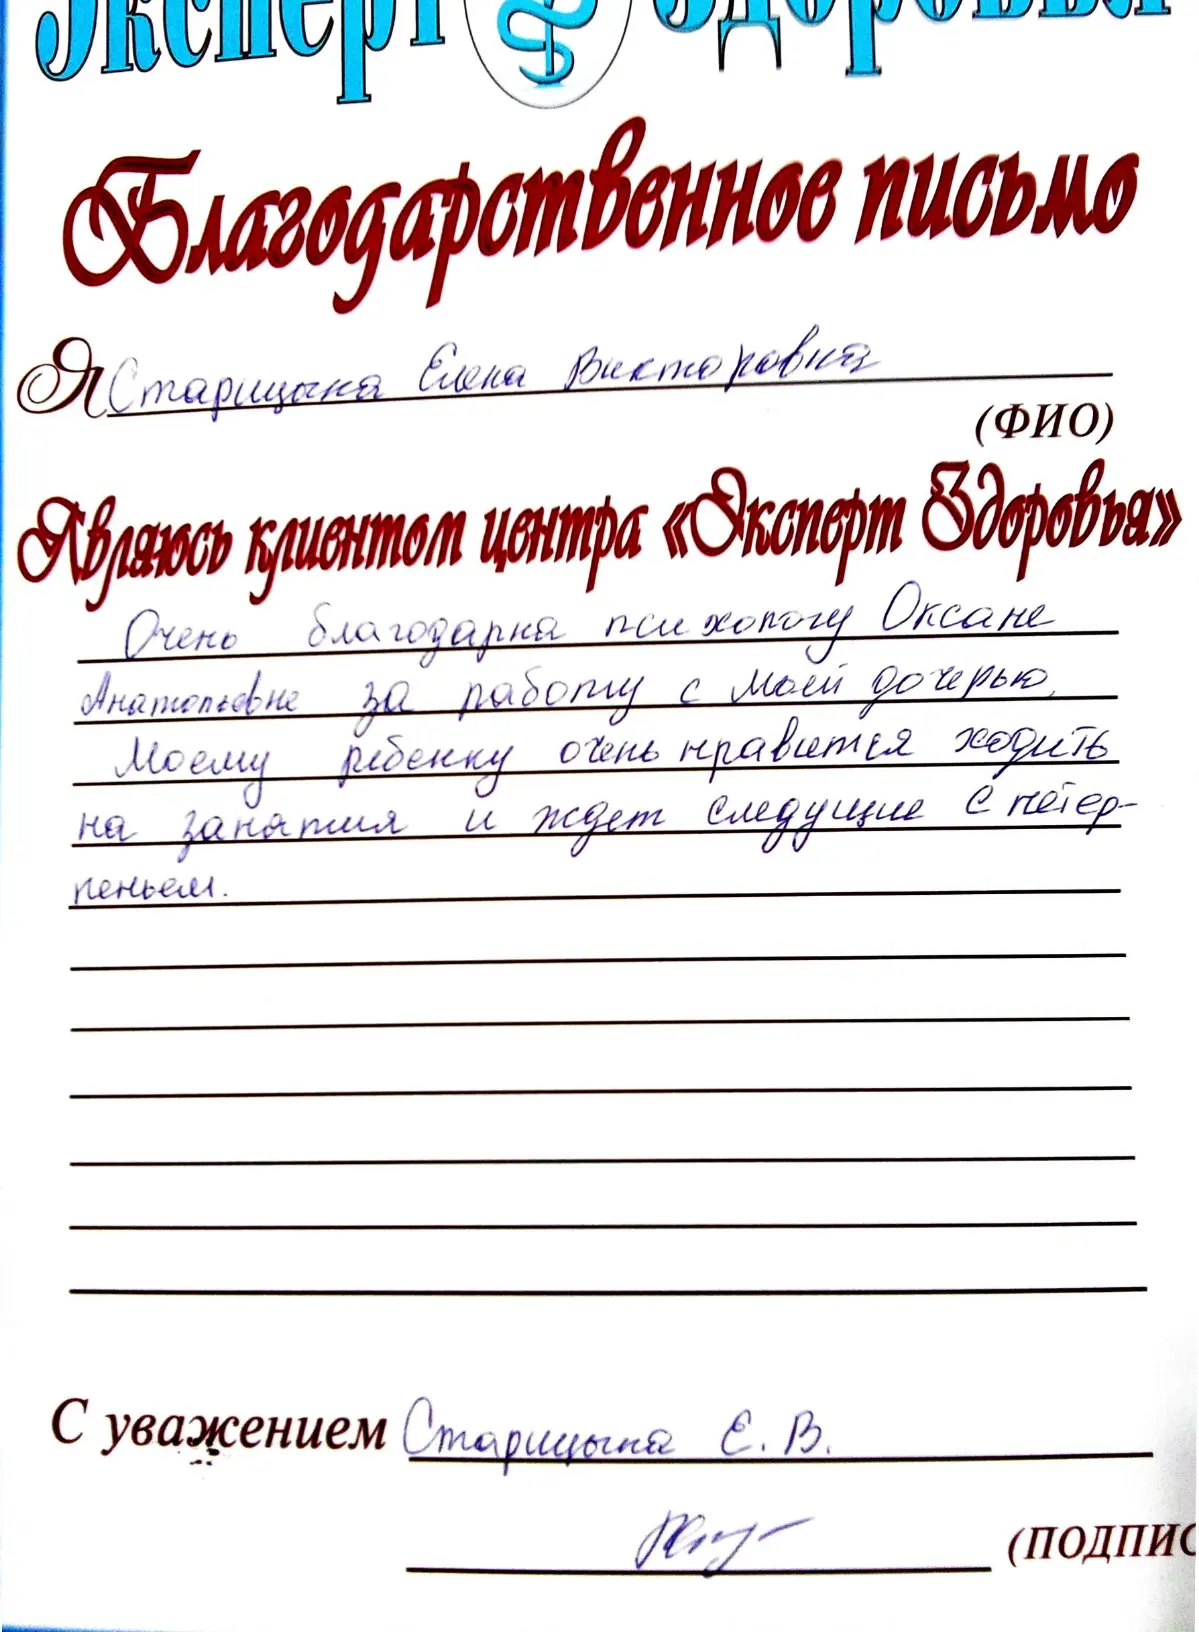 Эксперт Здоровья
Благодарственное письмо
Я Старицына Елена Викторовна
(ФИО)
Являюсь клиентом центра «Эксперт Здоровья»
Очень благодарна психологу Оксане
Анатольевне за работу с моей дочерью.
Моему ребенку очень нравится ходить
на занятия и ждет следущие с нетер-
пеньем.
С уважением Старицына Е. В.
(ПОДПИС